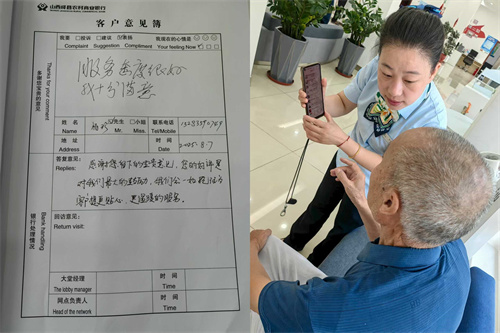 山西绛县农村商业银行
客户意见簿
我要 □投诉 □建议 ☑表扬 我现在的心情
Complaint Suggestion Compliment Your feeling Now
多谢您宝贵的意见
Thanks for your comment
服务态度很好
我十分满意
姓名 杨 ☑先生 □小姐 联系电话
Name Mr. Miss. Tel/Mobile
地址 时间 2025-8-7
Address Date
银行处理情况
Bank handling
答复意见:
Replies:
感谢您留下的宝贵意见,您的好评
是对我们最大的鼓励,我们会一如既往为
您提供贴心,更温暖的服务。
回访意见:
Return visit:
大堂经理 时间
The lobby manager Time
网点负责人 时间
Head of the network Time